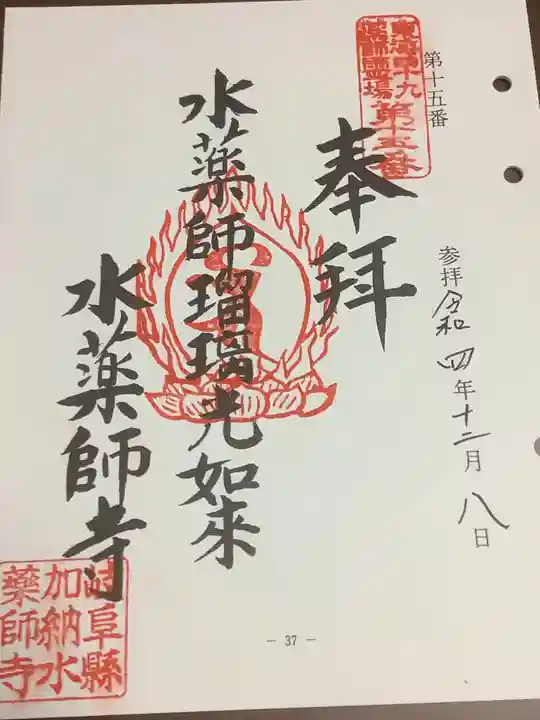 第十五番
東海四十九
薬師霊場
第十五番
奉拝
参拝 令和四年十二月八日
水薬師瑠璃光如来
水薬師寺
岐阜縣
加納水
薬師寺
- 37 -